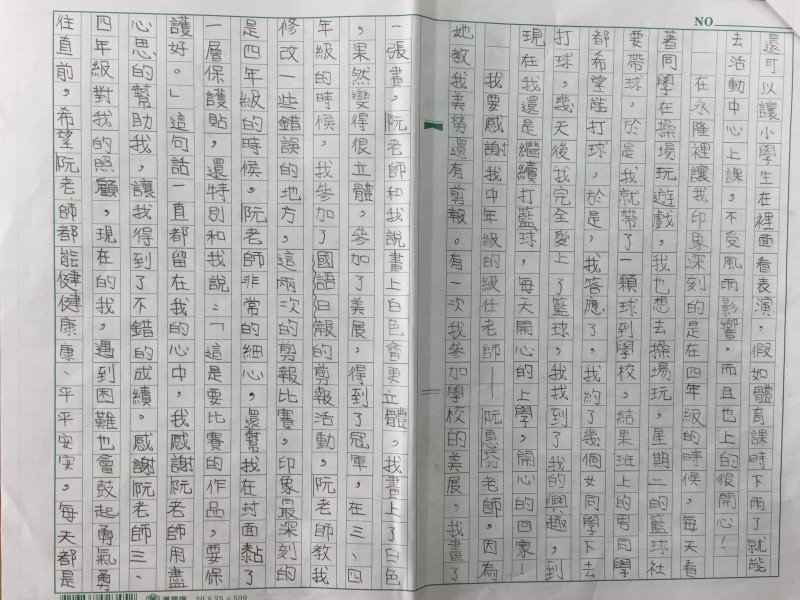 NO
還可以讓小學生在裡面看表演，假如體育課時下雨了就能
去活動中心上課，不受風雨影響，而且也上的很開心！
在永隆裡讓我印象深刻的是在四年級的時候，每天看
著同學在操場玩遊戲，我也想去操場玩，星期二的籃球社
要帶球，於是我就帶了一顆球到學校，結果班上的男同學
都希望能打球，於是，我答應了，我約了幾個女同學下去
打球，幾天後我完全愛上了籃球，我找到了我的興趣，到
現在我還是繼續打籃球，每天開心的上學，開心的回家！
我要感謝我中年級的級任老師——阮惠芬老師，因為
她教我美勞還有剪報。有一次我參加學校的美展，我畫了
一張畫，阮老師和我說畫上白色會更立體，我畫上了白色
，果然變得很立體，參加了美展，得到了冠軍，在三、四
年級的時候，我參加了國語日報的剪報活動，阮老師教我
修改一些錯誤的地方，這兩次的剪報比賽，印象最深刻的
是四年級的時候。阮老師非常的細心，還幫我在封面黏了
一層保護貼，還特別和我說：「這是要比賽的作品，要保
護好。」這句話一直都留在我的心中，我感謝阮老師用盡
心思的幫助我，讓我得到了不錯的成績。感謝阮老師三、
四年級對我的照顧，現在的我，遇到困難也會鼓起勇氣勇
往直前，希望阮老師都能健健康康、平平安安，每天都是
20×25=500